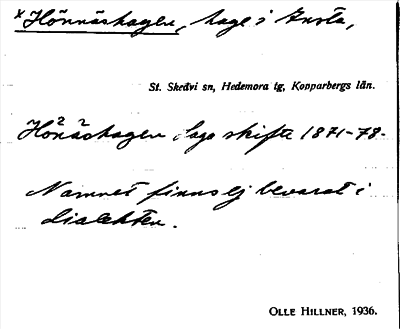 *Hönnäshagen, hage i Ansta,
St. Skedvi sn, Hedemora tg, Kopparbergs län.
Hönäshagen Laga skifte 1871-78.
Namnet finns ej bevarat i
dialekten.
OLLE HILLNER, 1936.